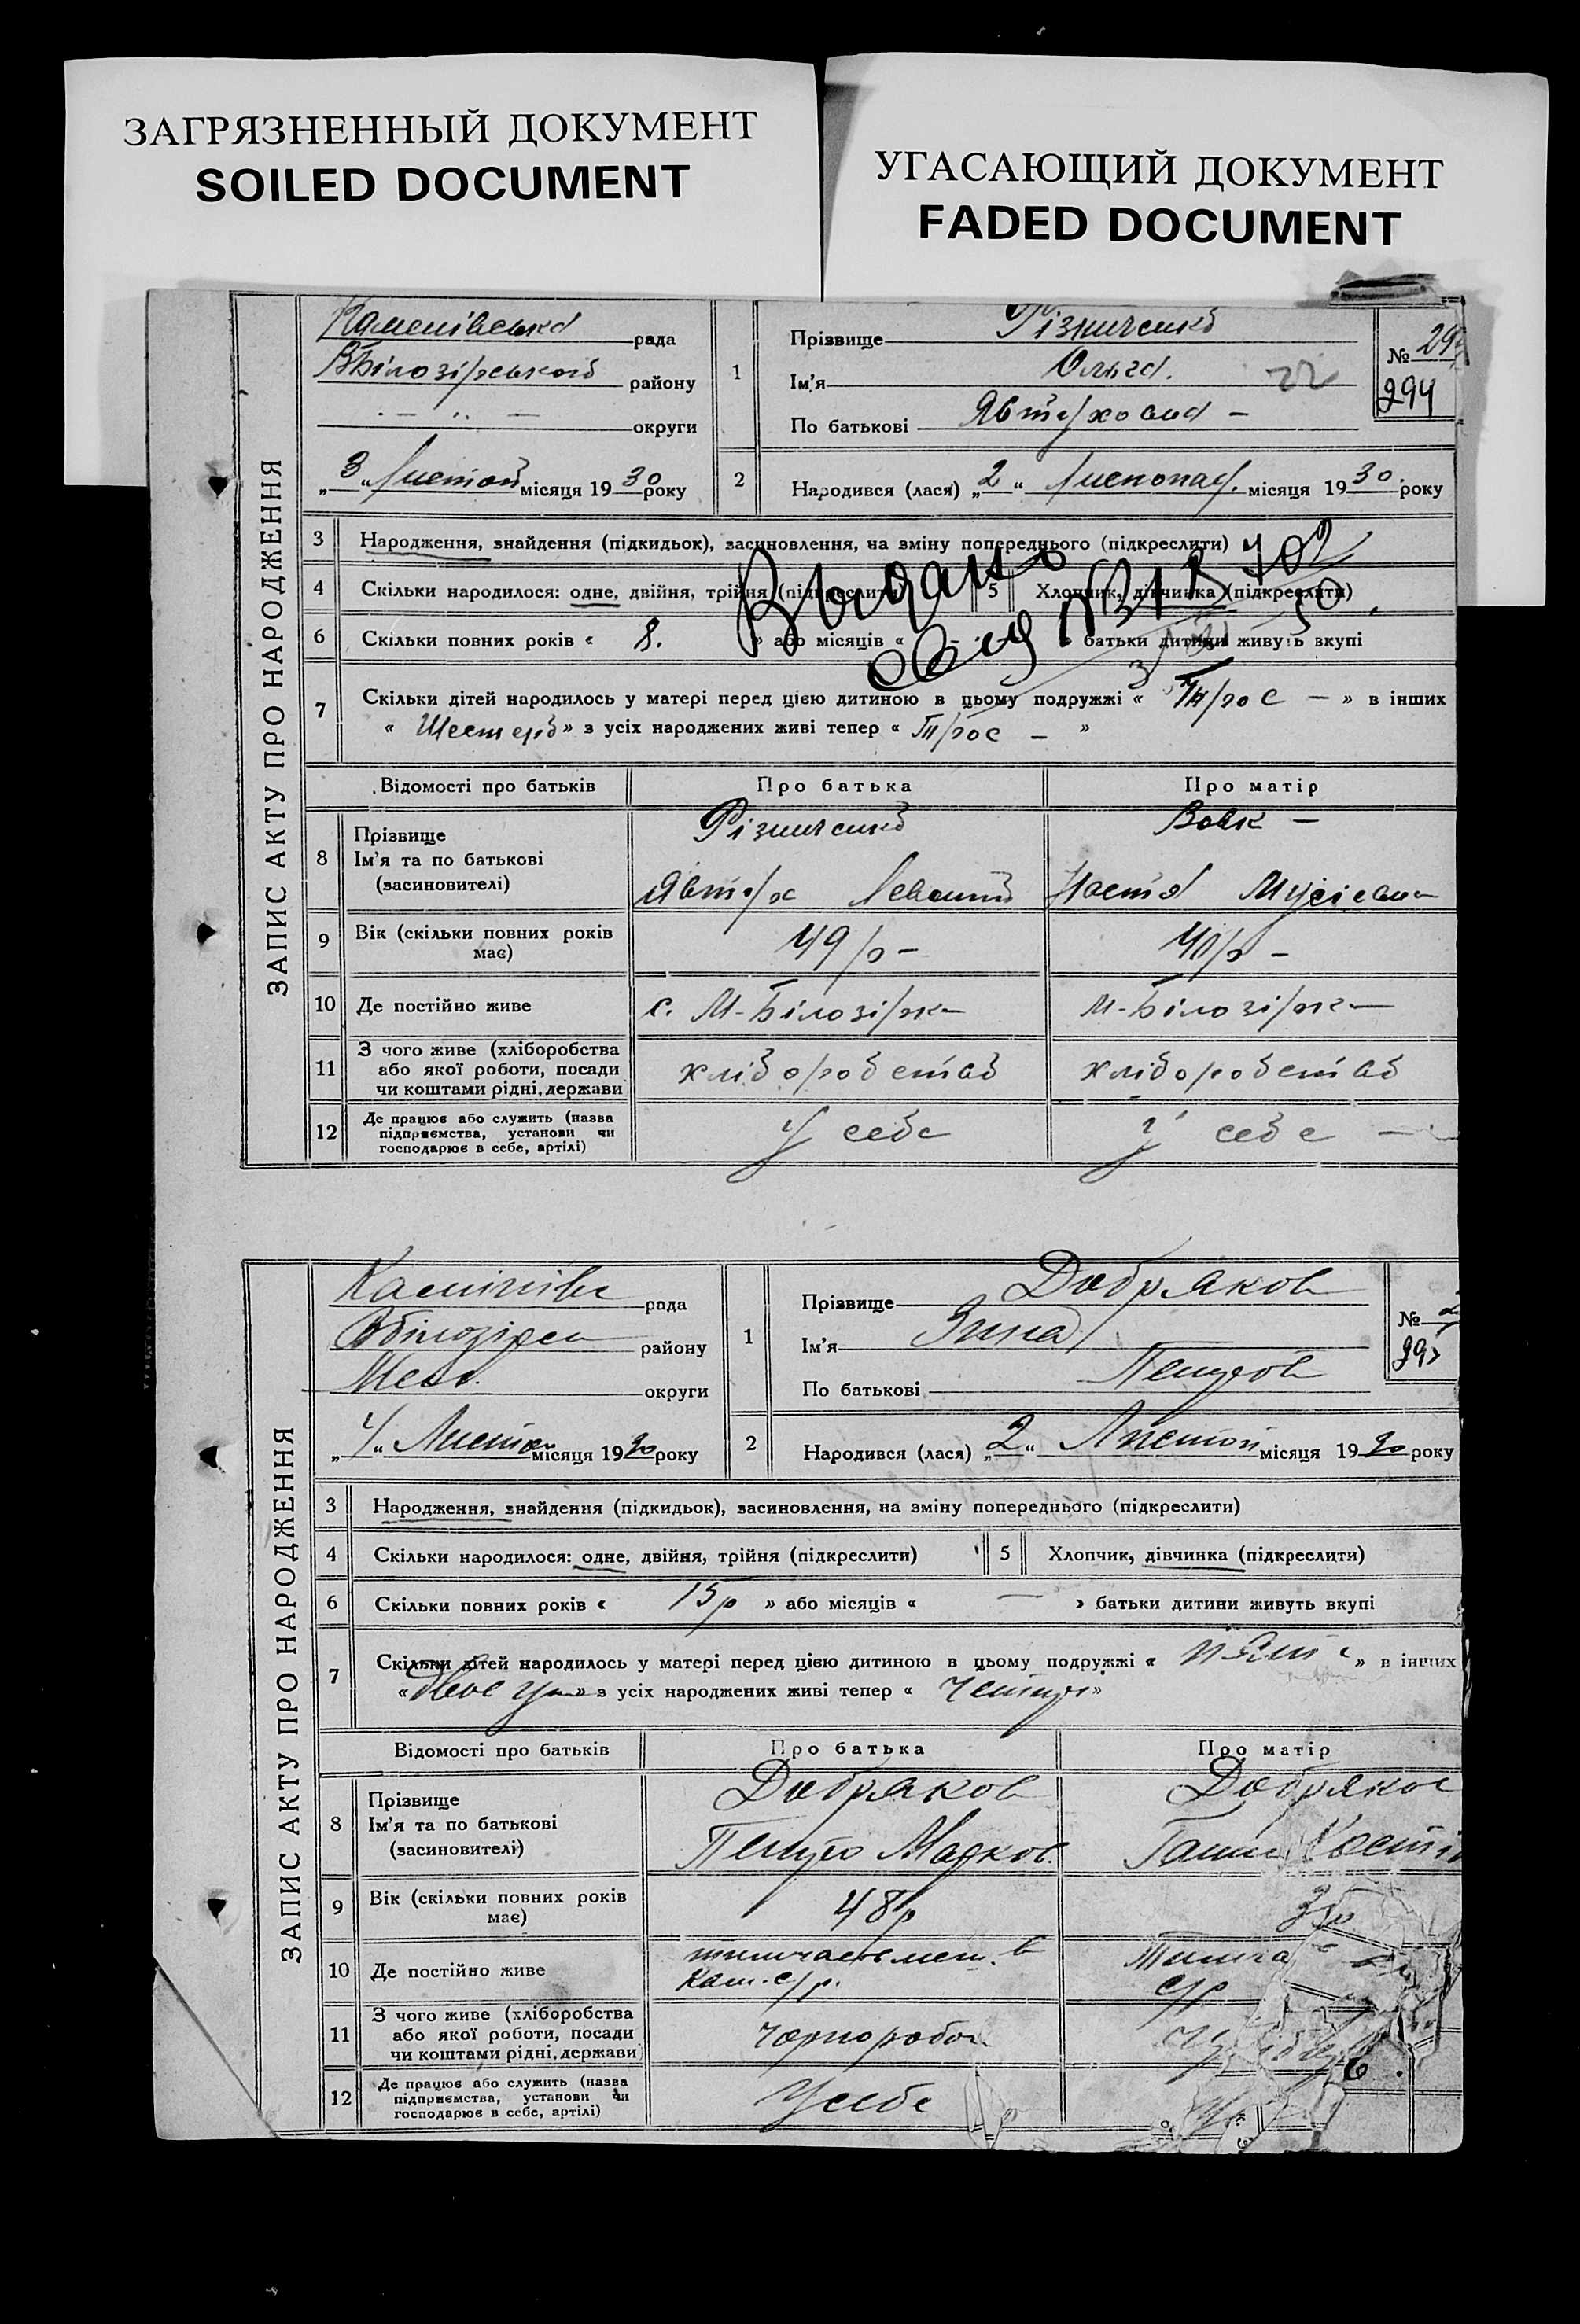 ЗАГРЯЗНЕННЫЙ ДОКУМЕНТ
SOILED DOCUMENT
УГАСАЮЩИЙ ДОКУМЕНТ
FADED DOCUMENT
ЗАПИС АКТУ ПРО НАРОДЖЕННЯ
рада
району
округи
„3“ Листоп місяця 1930 року
1
Прізвище Різниченко
Ім'я Ольга. 22
По батькові
№ 294
294
2
Народився (лася) „2“ Листопад. місяця 1930. року
3 Народження, знайдення (підкидьок), засиновлення, на зміну попереднього (підкреслити)
4 Скільки народилося: одне, двійня, трійня (підкреслити) 5 Хлопчик, дівчинка (підкреслити)
Выдано
6 Скільки повних років « 8. » або місяців « – » батьки дитини живуть вкупі
7 Скільки дітей народилось у матері перед цією дитиною в цьому подружжі « Трое – » в інших
« Шестеро » з усіх народжених живі тепер « Трое – »
Відомості про батьків Про батька Про матір
8 Прізвище
Ім'я та по батькові
(засиновителі)
Різниченко
Вовк –
Настя Мусієвна
9 Вік (скільки повних років має) 49 р – 40 р –
10 Де постійно живе с. М-Білозірка М-Білозірка
11 З чого живе (хліборобства або якої роботи, посади чи коштами рідні, держави хліборобство хліборобство
12 Де працює або служить (назва підприємства, установи чи господарює в себе, артілі) У себе У себе –
ЗАПИС АКТУ ПРО НАРОДЖЕННЯ
рада
району
Мел. округи
„4“ Листоп місяця 1930 року
1
Прізвище Добряков
Ім'я Зина
По батькові Петров
№
295
2
Народився (лася) „2“ Листоп місяця 1930 року
3 Народження, знайдення (підкидьок), засиновлення, на зміну попереднього (підкреслити)
4 Скільки народилося: одне, двійня, трійня (підкреслити) 5 Хлопчик, дівчинка (підкреслити)
6 Скільки повних років « 15 р » або місяців « — » батьки дитини живуть вкупі
7 Скільки дітей народилось у матері перед цією дитиною в цьому подружжі « » в інших
« » з усіх народжених живі тепер « »
Відомості про батьків Про батька Про матір
8 Прізвище
Ім'я та по батькові
(засиновителі)
Добряков
Петро Марков.
Добряков
Ганна
9 Вік (скільки повних років має) 48 р
10 Де постійно живе тимчась мет. в Кам. с/р. с/р
11 З чого живе (хліборобства або якої роботи, посади чи коштами рідні, держави чорноробоч.
12 Де працює або служить (назва підприємства, установи чи господарює в себе, артілі) У себе